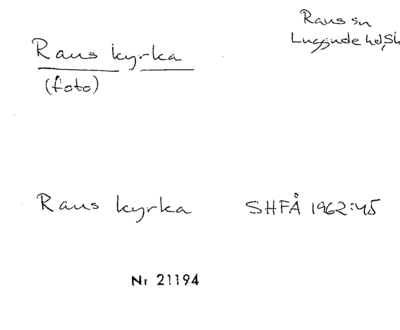 Raus sn
Luggude hd, Sk
Raus kyrka
(foto)
Raus kyrka SHFÅ 1962:45
Nr 21194